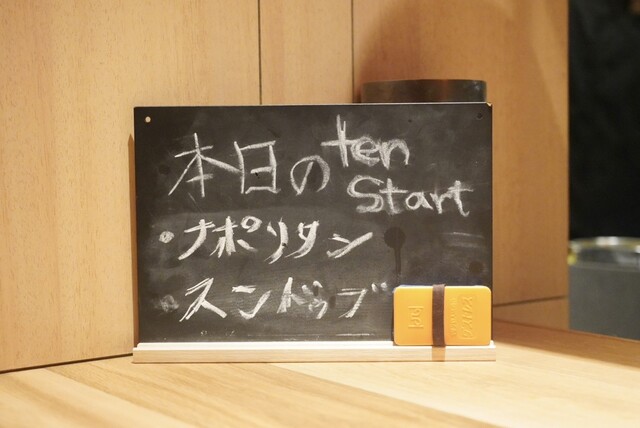 本日の ten
Start
・ナポリタン
・スンドゥブ